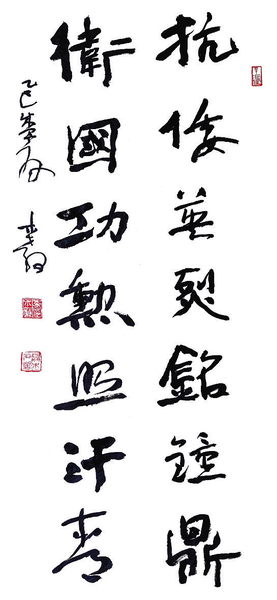 抗倭英烈銘鐘鼎
衛國功勲照汗青
乙巳